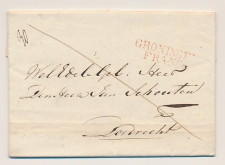 90
GRONING
FRANCO
Wel Edele Geb. Heer
Den Heer Jan Schouten
Dordrecht